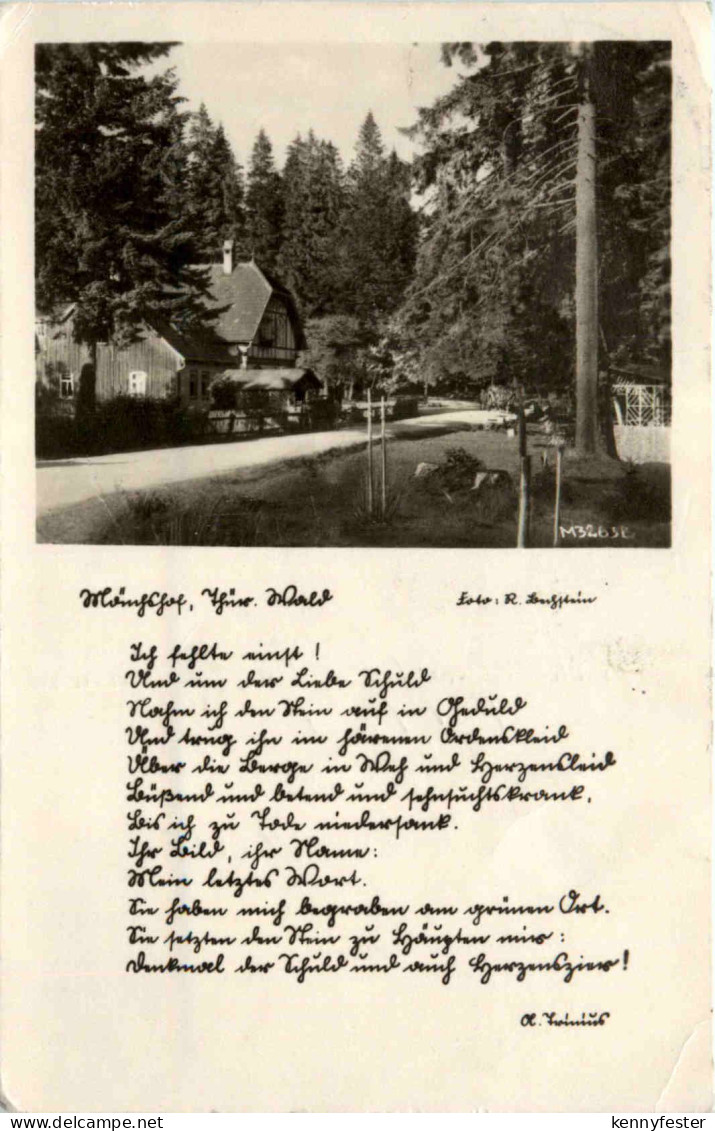 M3263B
Mönchshof, Thür. Wald Foto: R. Bechstein
Ich fehlte einst!
Und um der Liebe Schuld
Nahm ich den Stein auf in Geduld
Und trug ihn im härenen Ordenskleid
Über die Berge in Weh und Herzensleid
Büßend und betend und sehnsuchtskrank,
Bis ich zu Tode niedersank.
Ihr Bild, ihr Name:
Mein letztes Wort.
Sie haben mich begraben am grünen Ort.
Sie setzten den Stein zu Häupten mir:
Denkmal der Schuld und auch Herzenszier!
A. Trinius
www.delcampe.net kennyfester